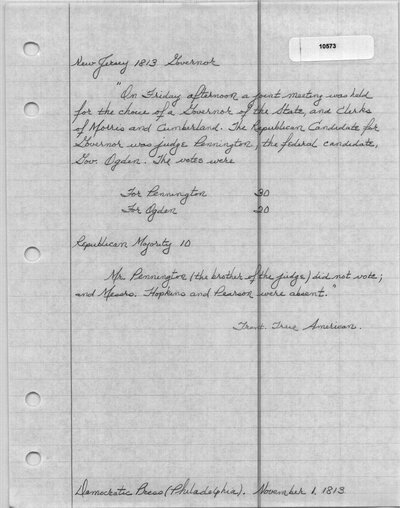 10573
New Jersey 1813 Governor
"On Friday afternoon a joint meeting was held
for the choice of a Governor of the State, and Clerks
of Morris and Cumberland. The Republican Candidate for
Governor was judge Pennington, the federal candidate,
Gov. Ogden. The votes were
For Pennington 30
For Ogden 20
Republican Majority 10
Mr. Pennington (the brother of the judge) did not vote;
and Messrs. Hopkins and Pearson were absent."
Trent. True American.
Democratic Press (Philadelphia). November 1, 1813.